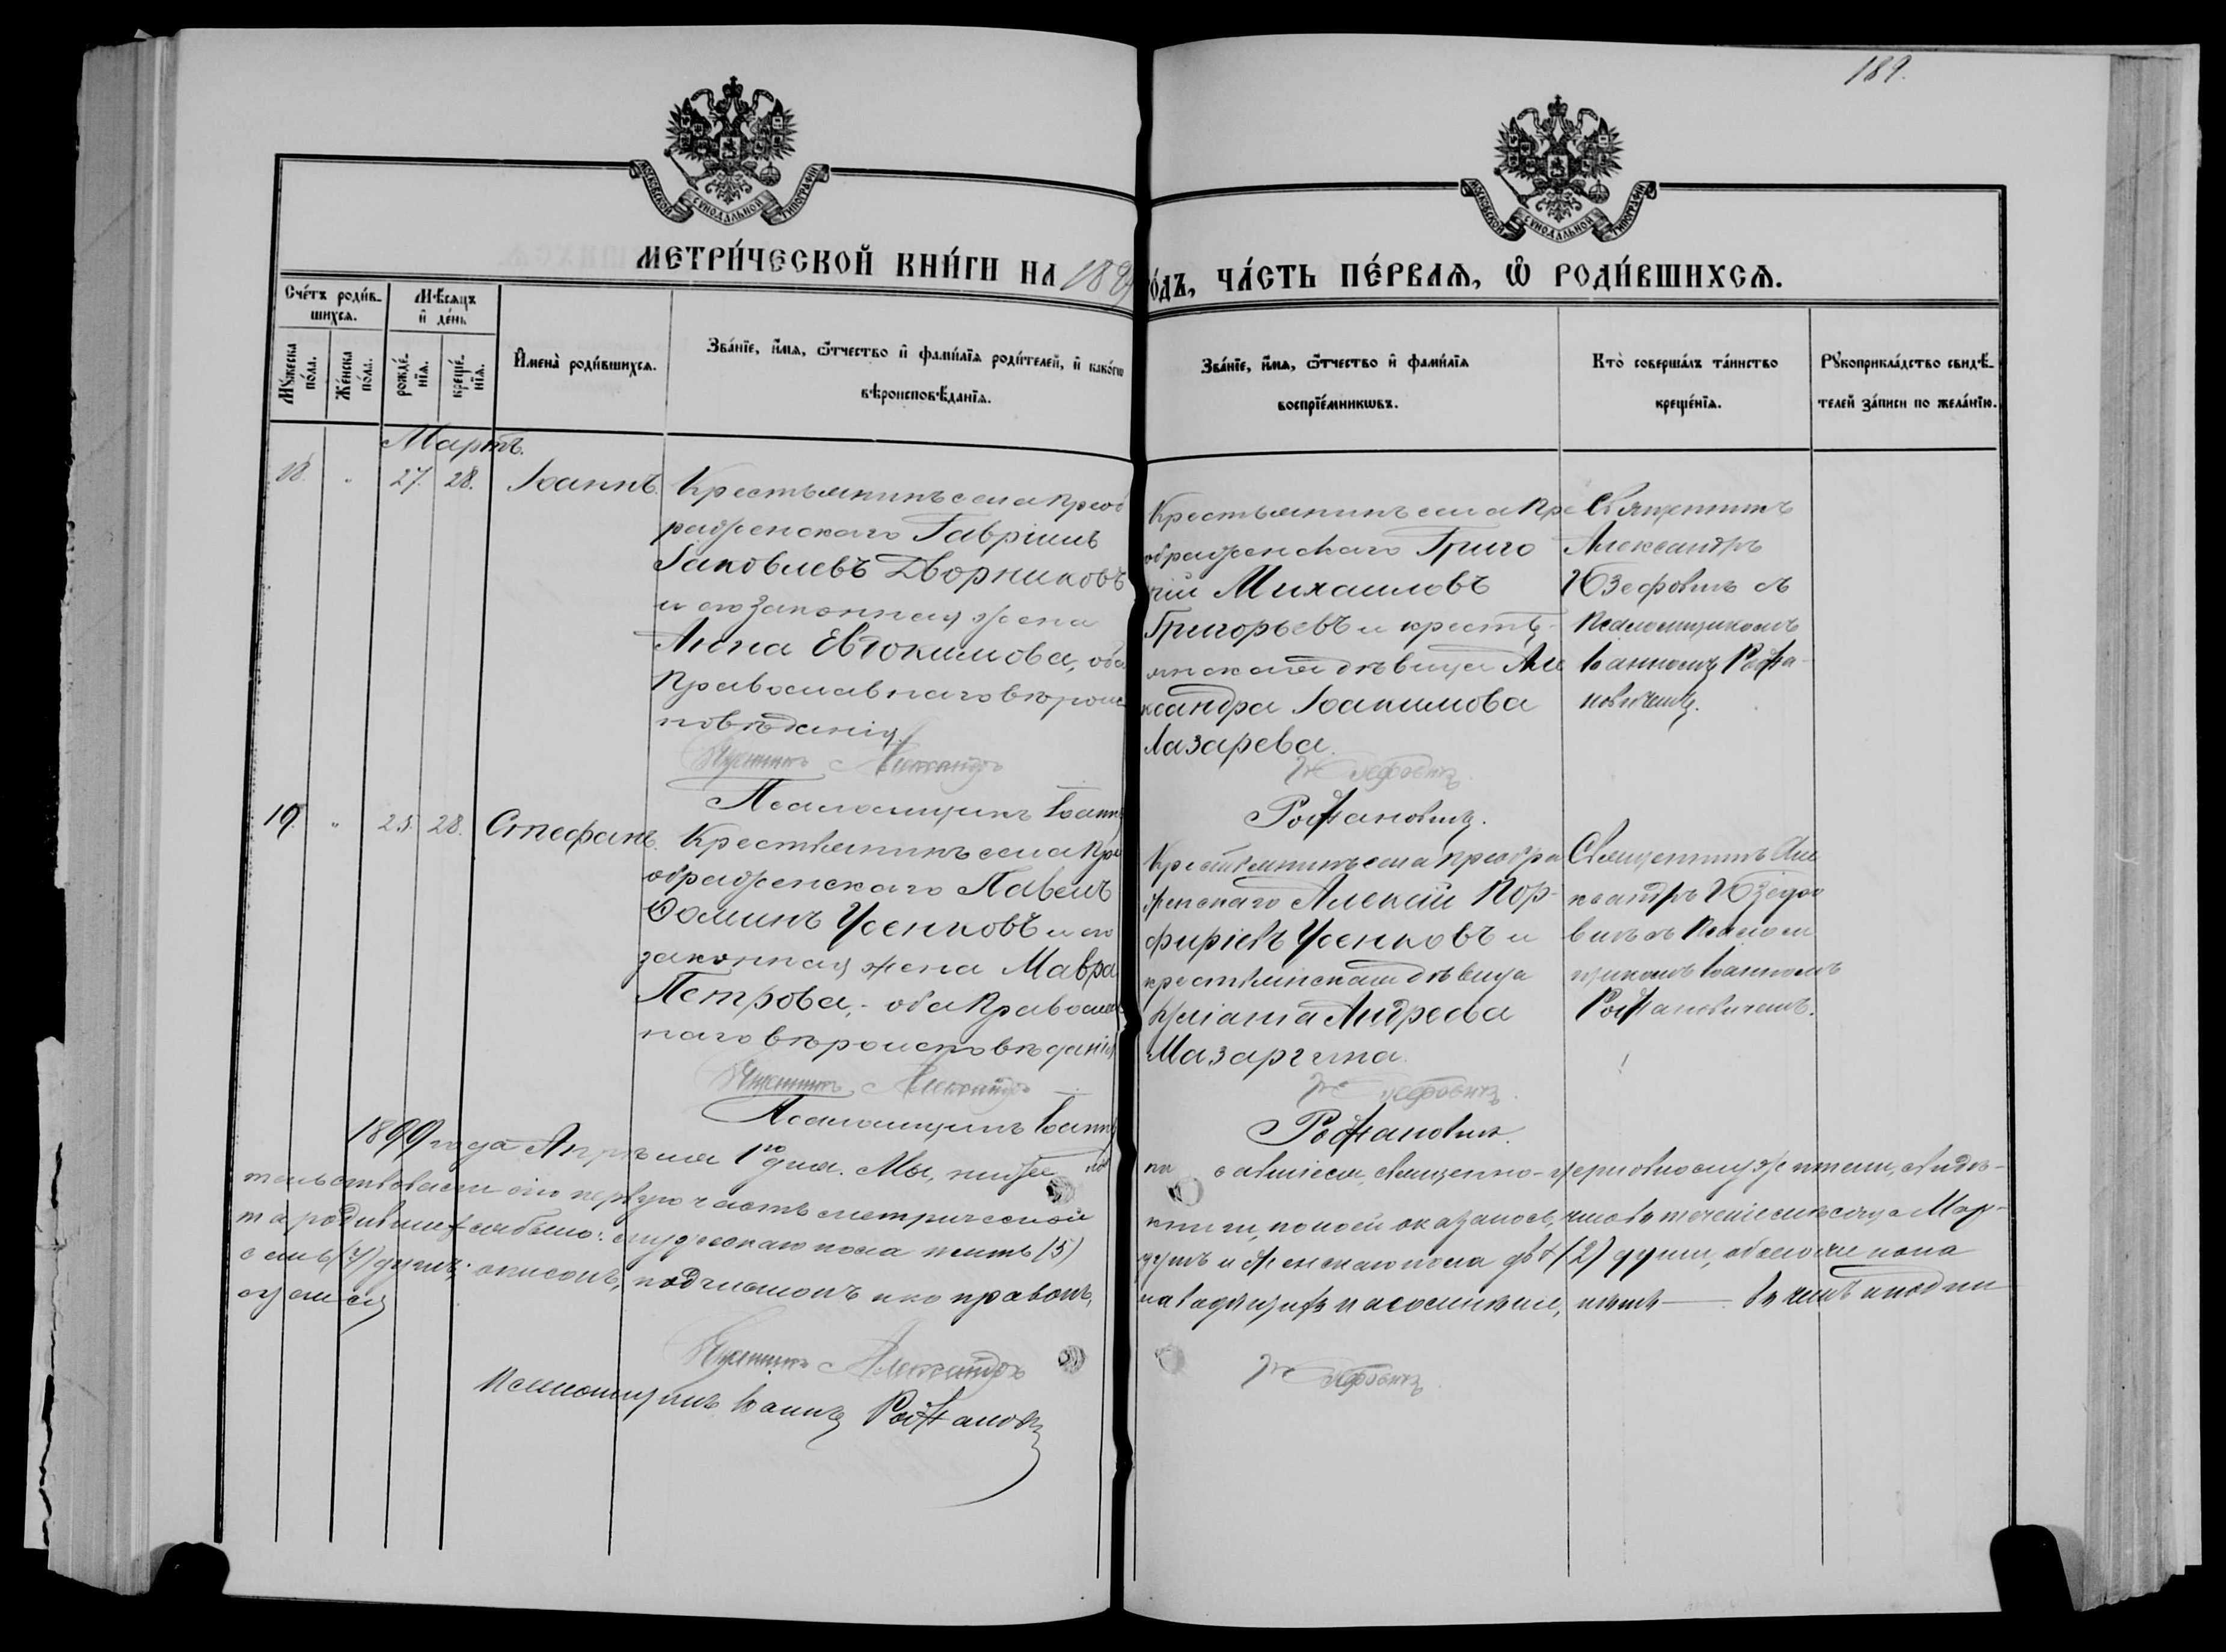 189.
МОСКОВСКОЙ СѴНОДАЛЬНОЙ ТИПОГРАФІИ
МОСКОВСКОЙ СѴНОДАЛЬНОЙ ТИПОГРАФІИ
МЕТРИ́ЧЕСКОЙ КНИ́ГИ НА 1899
О́ДЪ, ЧА́СТЬ ПЕ́РВАѦ, Ѽ РОДИ́ВШИХСѦ.
Сче́тъ роди́в-
шихсѧ.
Мѣсѧцъ
и҆ де́нь
Мꙋ́жеска
по́ла.
Же́нска
по́ла.
рожде́-
нїѧ.
креще́-
нїѧ.
И҆мена̀ роди́вшихсѧ.
Зва́нїе, и҆́мѧ, ѻ҆́тчество и҆ фами́лїѧ роди́телей, и҆ како́гѡ
вѣроисповѣ́данїѧ.
Зва́нїе, и҆́мѧ, ѻ҆́тчество и҆ фами́лїѧ
воспрїе́мникѡвъ.
Кто̀ соверша́лъ та́инство
креще́нїѧ.
Рꙋкоприкла́дство свидѣ́-
телей за́писи по жела́нїю.
Мартъ.
18. " 27. 28. Іоаннъ.
Крестьянинъ села Преоб
раженскаго Гавріилъ
Іаковлевъ Дворниковъ
и его законная жена
Анна Евдокимова, оба
Православнаго вѣроис
повѣданія.
Священникъ Александръ
Псаломщикъ Іоаннъ
Крестьянинъ села Пре
ображенскаго Григо
рій Михаиловъ
Григорьевъ и кресть-
янская дѣвица Але
ксандра Іоакимова
Лазарева.
Юзефовичъ.
Рожановичъ.
Священникъ
Александръ
Юзефовичъ съ
Псаломщикомъ
Іоанномъ Рожа-
новичемъ.
19. " 25. 28. Стефанъ.
Крестьянинъ села Пре
ображенскаго Павелъ
Ѳоминъ Усенковъ и его
законная жена Мавра
Петрова, - оба Православ
наго вѣроисповѣданія
Священникъ Александръ
Псаломщикъ Іоаннъ
Крестьянинъ села Преобра
женскаго Алексій Пор-
фиріевъ Усенковъ и
крестьянская дѣвица
Андреева
Юзефовичъ.
Рожановичъ.
Священникъ Але
ксандръ Юзефо
вичъ съ Псалом
щикомъ Іоанномъ
Рожановичемъ.
1899 года Апрѣля 1го дня. Мы, ниже под
писавшіеся, священно-церковнослужители, свидѣ-
тельствовали сію первую часть метрической
книги, по коей оказалось, что въ теченіе мѣсяца Мар-
та родившихся было: мужескаго пола пять (5)
душъ и женскаго пола двѣ (2) души, обоего же пола
семь (7) душъ;
въ чемъ и подпи
суемся
Священникъ Александръ
Юзефовичъ
Псаломщикъ Іоаннъ Рожановичъ